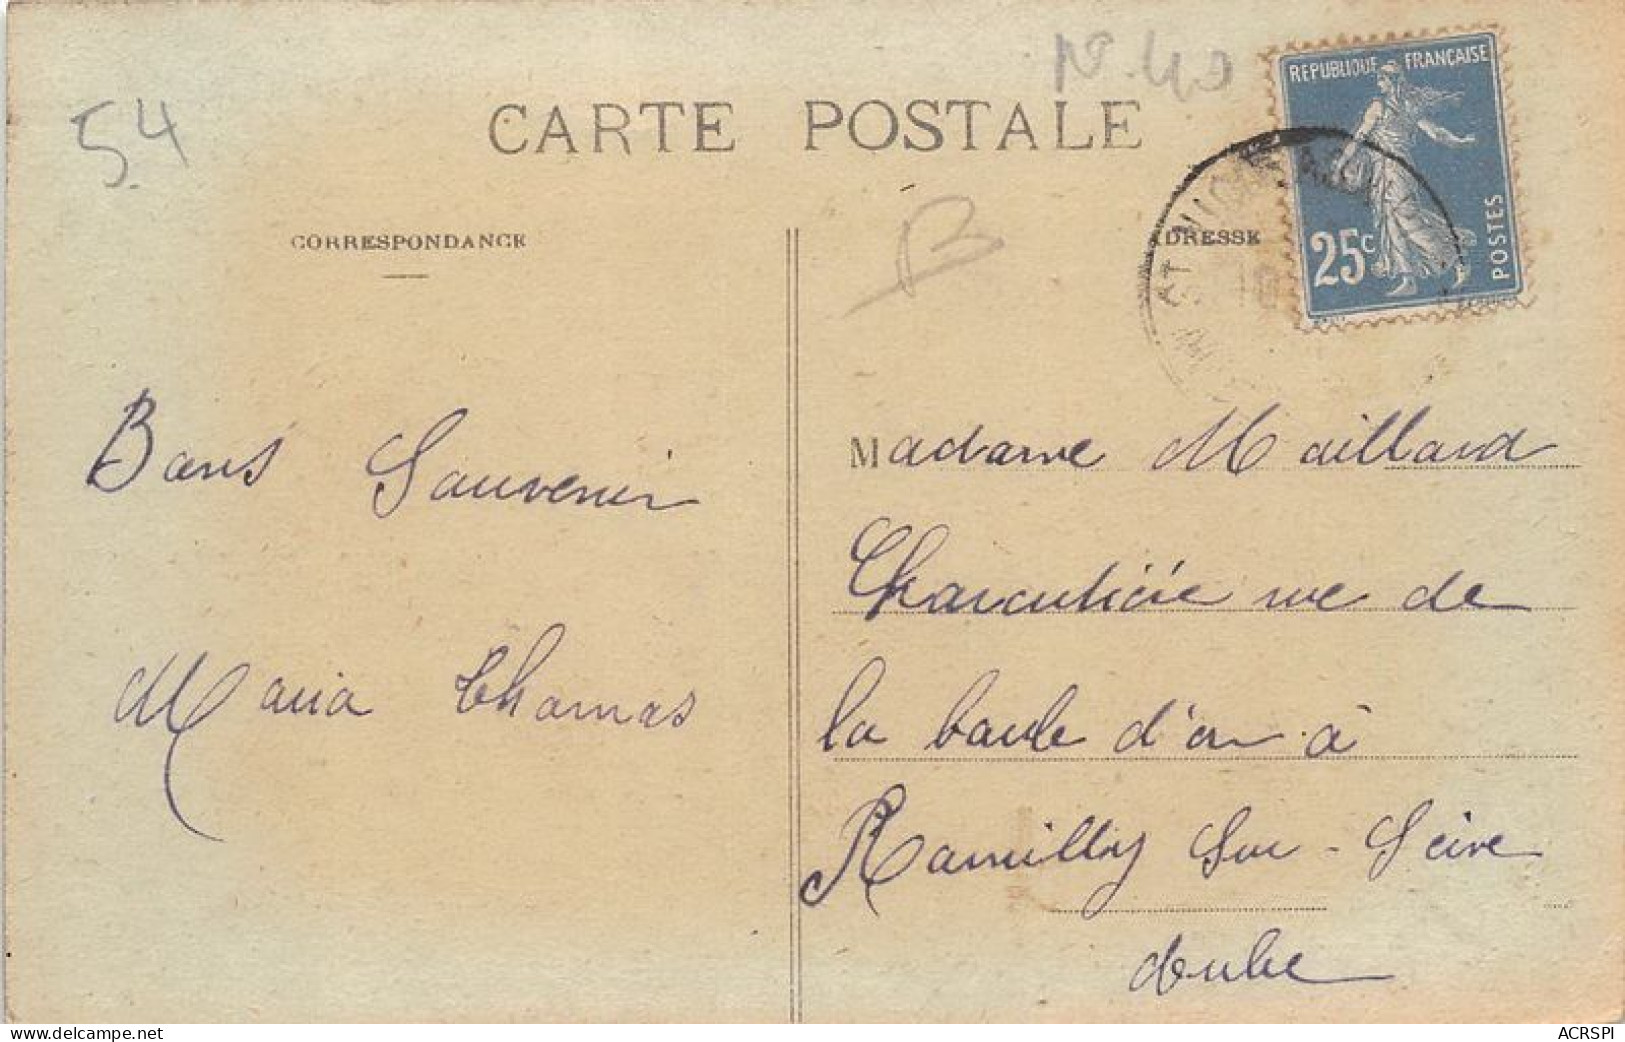 54
N° 40
CARTE POSTALE
REPUBLIQUE FRANÇAISE
25c
POSTES
CORRESPONDANCE
ADRESSE
B
ST NICOLAS
Bons Souvenir
Maria Thomas
Madame Maillard
Charcutière rue de
la boule d'or à
Romilly Sur - Seine
Aube
www.delcampe.net
ACRSPI